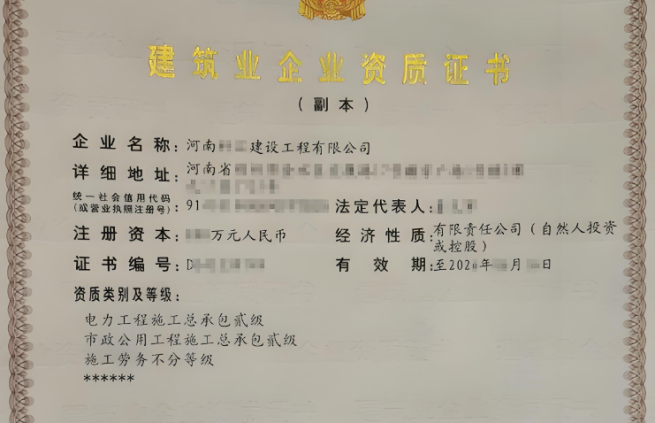 建筑业企业资质证书
（副本）
企业名称：河南 建设工程有限公司
详细地址：河南省
统一社会信用代码
（或营业执照注册号）：91 法定代表人：
注册资本： 万元人民币 经济性质：有限责任公司（自然人投资
或控股）
证书编号：D 有效期：至202 年 月 日
资质类别及等级：
电力工程施工总承包贰级
市政公用工程施工总承包贰级
施工劳务不分等级
******